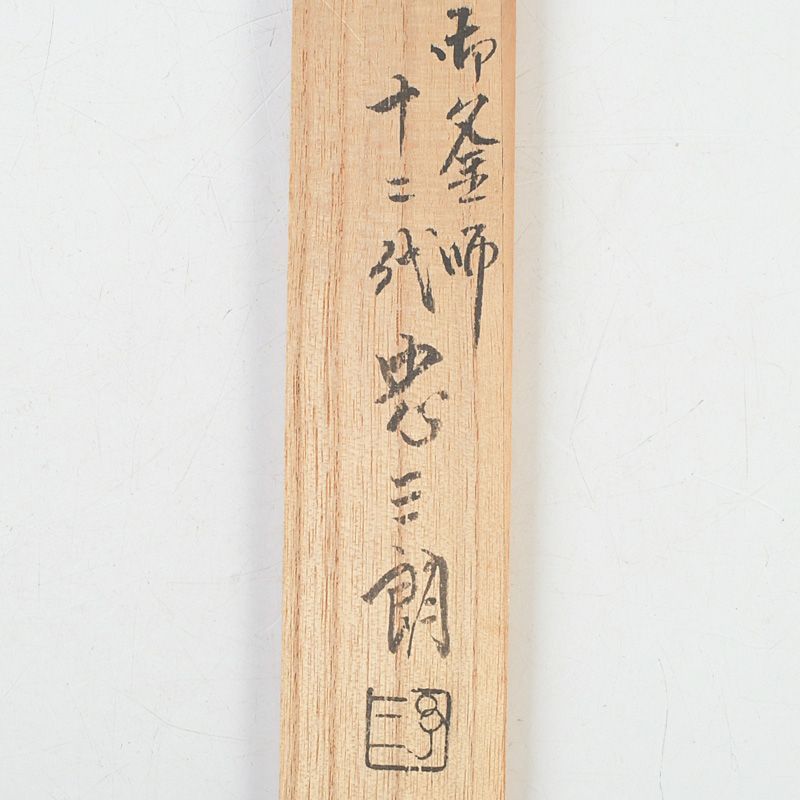 御釜師
十二代 忠三朗